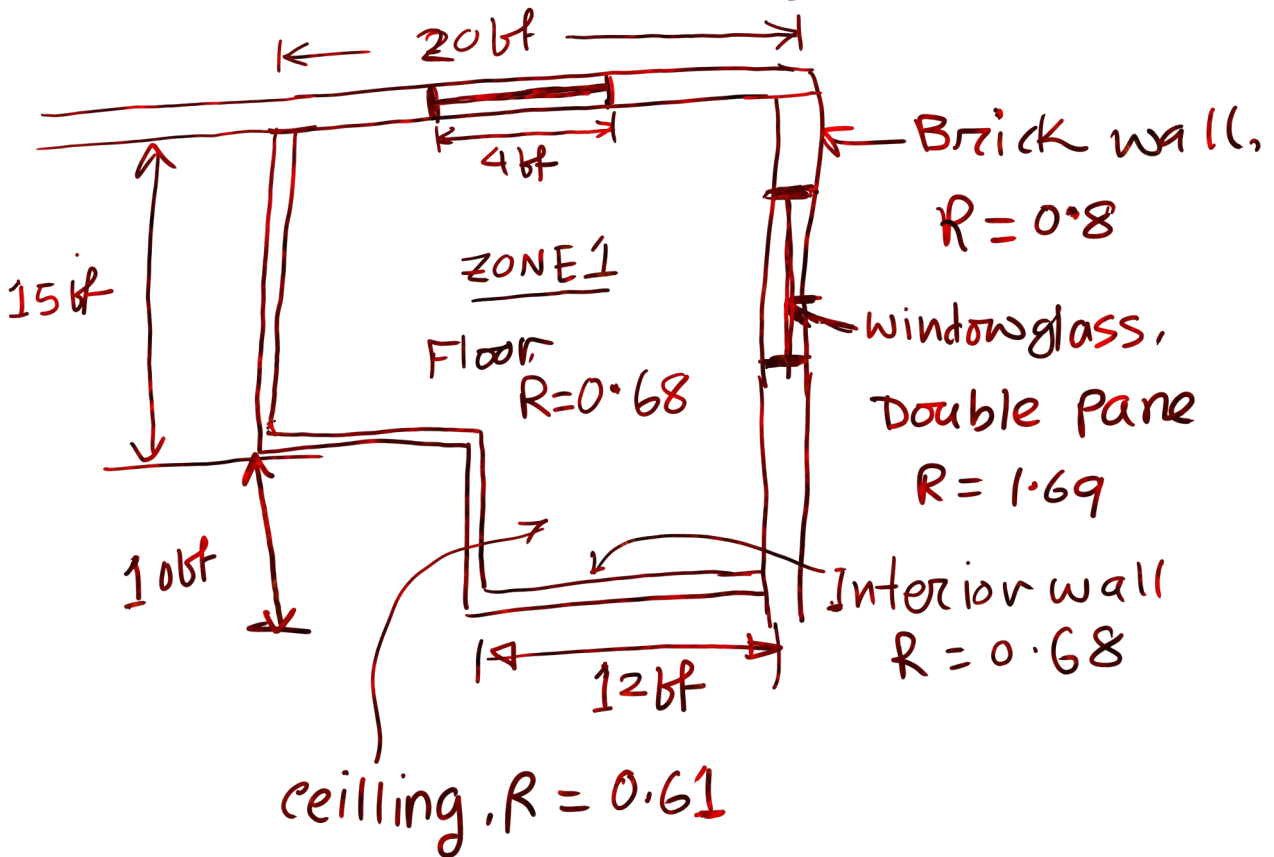 20 ft
4 ft
Brick wall,
R = 0.8
15 ft
ZONE 1
Floor,
R=0.68
window glass,
Double Pane
R = 1.69
10 ft
Interior wall
R = 0.68
12 ft
ceilling, R = 0.61